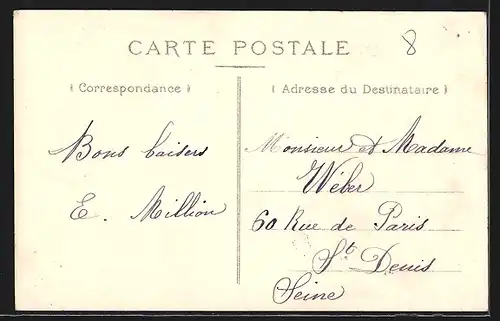 CARTE POSTALE
8
( Correspondance )
Bons baisers
E. Million
( Adresse du Destinataire )
Monsieur et Madame
Wéber
60 Rue de Paris
St Denis
Seine